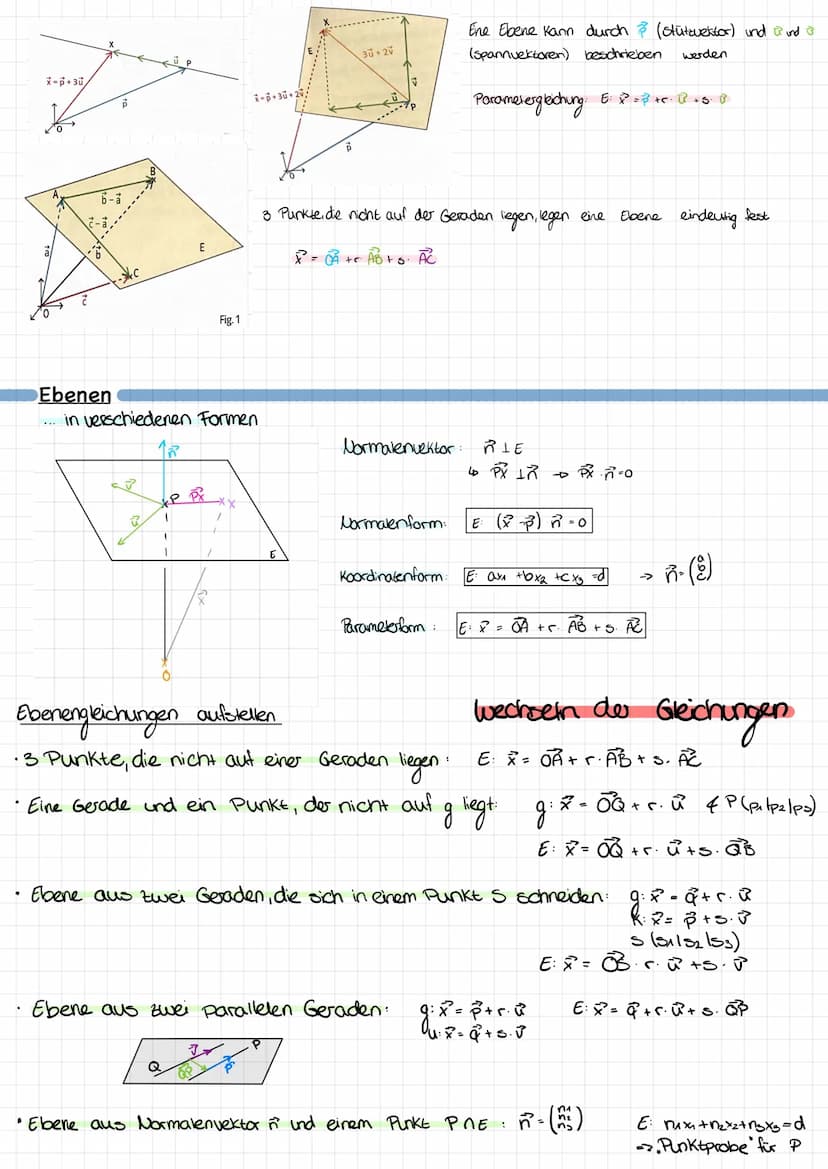 x
u⃗ P
x⃗=p⃗+3u⃗
p⃗
O
X
E
3u⃗+2v⃗
v⃗
u⃗
P
x⃗=p⃗+3u⃗+2v⃗
p⃗
O
Ene Ebene kann durch p⃗ (Stützvektor) und u⃗ und v⃗
(spannvektoren) beschrieben werden
Parametergleichung: E: x⃗ = p⃗ + r · u⃗ + s · v⃗
A
B
b⃗-a⃗
c⃗-a⃗
a⃗
b⃗
E
C
c⃗
O
Fig. 1
3 Punkte, die nicht auf der Geraden liegen, legen eine Ebene eindeutig fest
x⃗ = OA⃗ + r AB⃗ + s · AC⃗
Ebenen
... in verschiedenen Formen
n⃗
v⃗
P PX⃗ X
u⃗
E
x⃗
O
Normalenvektor: n⃗ ⊥ E
↳ PX⃗ ⊥ n⃗ → PX⃗ · n⃗ = 0
Normalenform: E: (x⃗ - p⃗) n⃗ = 0
Koordinatenform: E: ax₁ + bx₂ + cx₃ = d → n⃗ = (a b c)
Parameterform: E: x⃗ = OA⃗ + r · AB⃗ + s · AC⃗
Ebenengleichungen aufstellen
Wechseln der Gleichungen
· 3 Punkte, die nicht auf einer Geraden liegen: E: x⃗ = OA⃗ + r · AB⃗ + s. AC⃗
· Eine Gerade und ein Punkt, der nicht auf g liegt: g: x⃗ = OQ⃗ + r. u⃗ & P (p₁|p₂|p₃)
E: x⃗ = OQ⃗ + r · u⃗ + s · QB⃗
· Ebene aus zwei Geraden, die sich in einem Punkt S schneiden: g: x⃗ = q⃗ + r. u⃗
k: x⃗ = p⃗ + s. v⃗
S (s₁|s₂|s₃)
E: x⃗ = OS⃗ · r · u⃗ + s · v⃗
· Ebene aus zwei parallelen Geraden: g: x⃗ = p⃗ + r · u⃗ E: x⃗ = q⃗ + r · u⃗ + s · QP⃗
u: x⃗ = q⃗ + s. v⃗
v⃗ P
Q QP⃗ p⃗
· Ebene aus Normalenvektor n⃗ und einem Punkt P∩E: n⃗ = (n₁ n₂ n₃) E: n₁x₁+n₂x₂+n₃x₃=d
→ „Punktprobe" für P